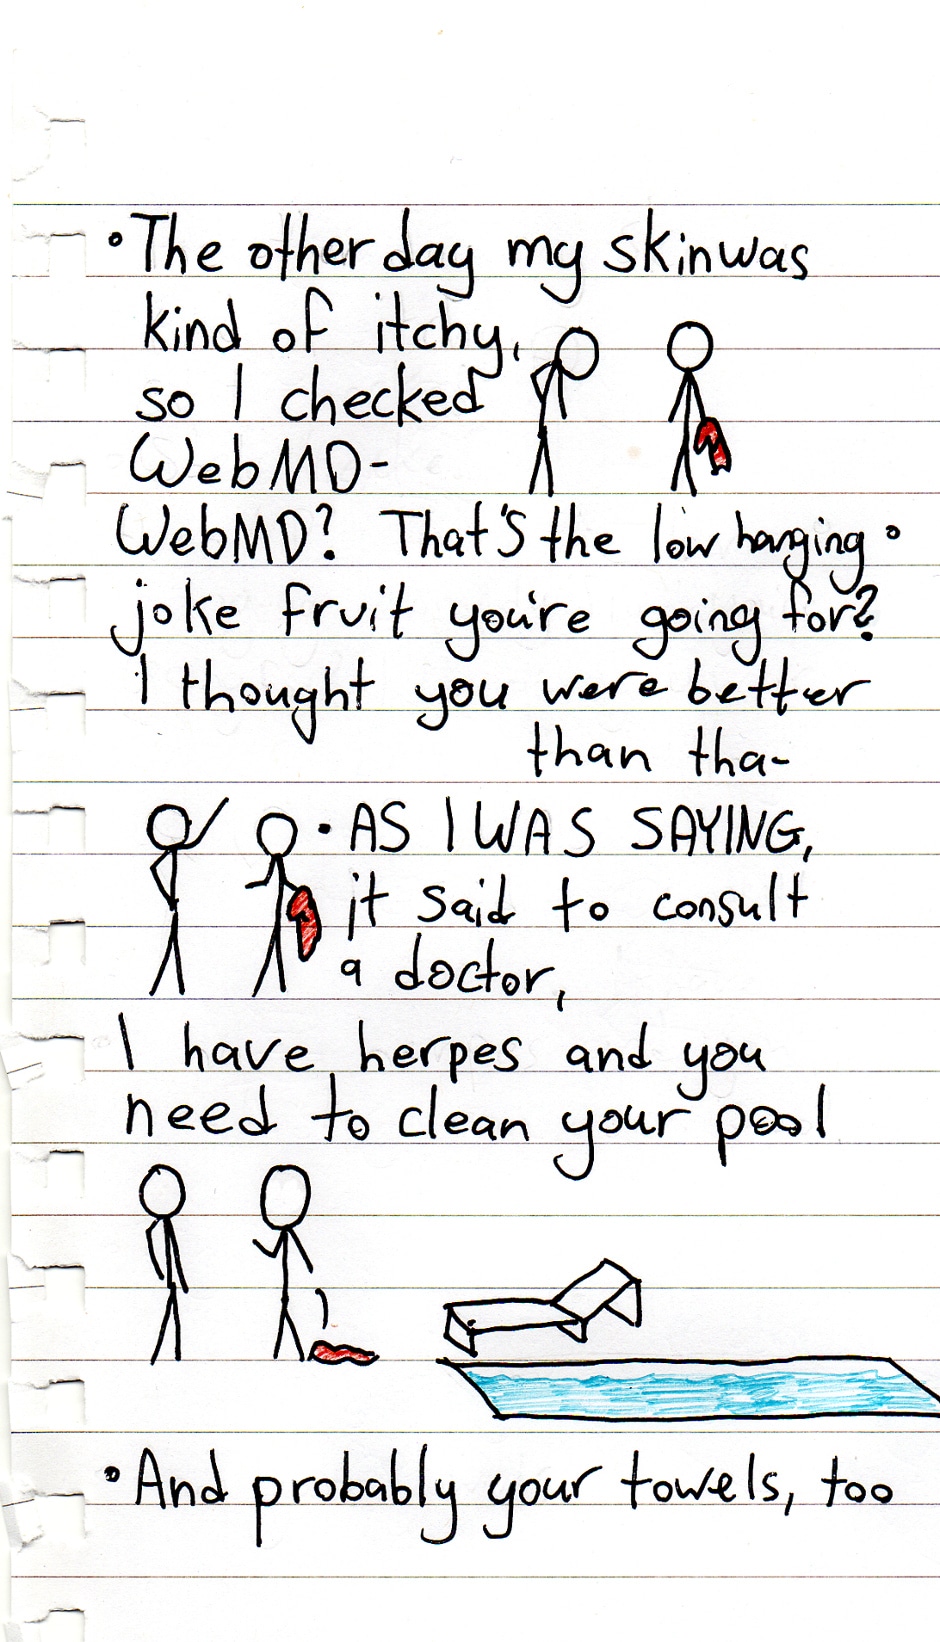 •The other day my skin was
kind of itchy,
so I checked
WebMD-
WebMD? That's the low hanging •
joke fruit you're going for?
I thought you were better
than tha-
• AS I WAS SAYING,
it said to consult
a doctor,
I have herpes and you
need to clean your pool
•And probably your towels, too